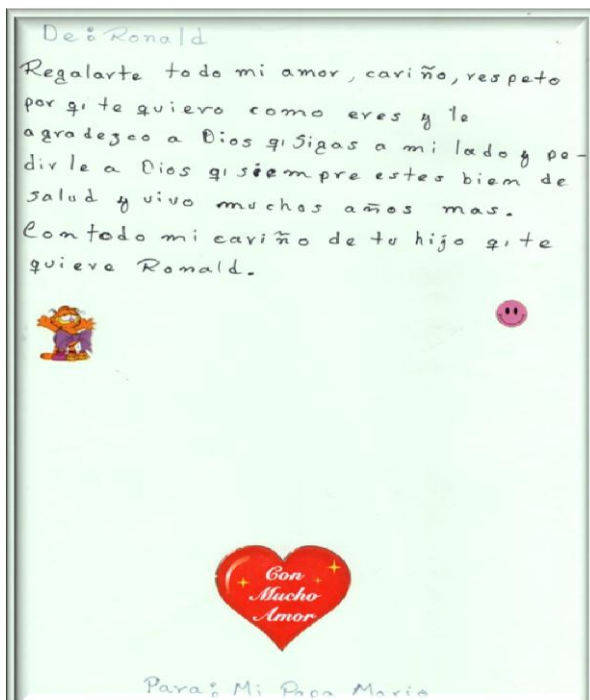 De: Ronald
Regalarte todo mi amor, cariño, respeto
por qi te quiero como eres y le
agradezco a Dios qi sigas a mi lado y pe-
dirle a Dios qi siempre estes biem de
salud y vivo muchos años mas.
Con todo mi cariño de tu hijo qi te
quiere Ronald.
Con
Mucho
Amor
Para: Mi Papa Mario